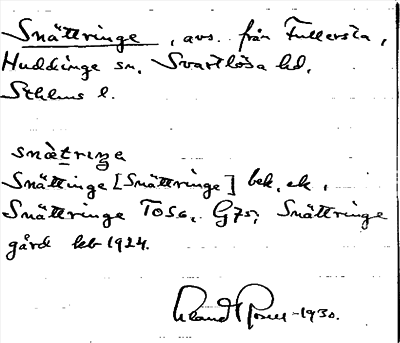 Snättringe, avs. från Fullersta,
Huddinge sn. Svartlösa hd,
Sthlms l.
snætriŋe
Snättinge [Snättringe] bek, ek,
Snättringe TOSc, G75; Snättringe
gård kb 1924.
-1930.